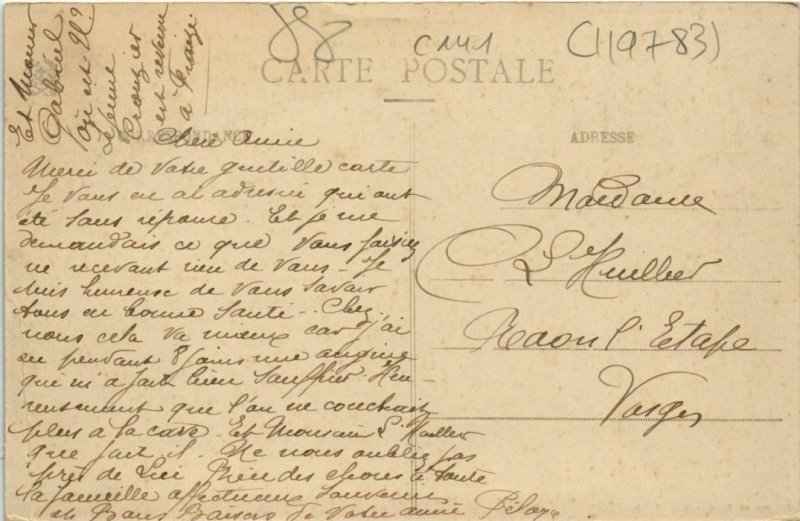 88
C141
(119783)
CARTE POSTALE
CORRESPONDANCE
ADRESSE
Chère Amie
Merci de votre gentille carte
Je vous en ai adressé qui ont
été sans réponse. Et je me
demandais ce que vous faisiez
ne recevant rien de vous - Je
suis heureuse de vous savoir
tous en bonne santé - Chez
nous cela va mieux car j'ai
eu pendant 8 jours une angine
qui m'a fait bien souffrir. Heu-
reusement que l'on ne couchait
plus à la cave. Et Monsieur L'Huillier
que fait il. Ne nous oubliez pas
près de Lui Bien des choses à toute
la famille affectueux souvenirs
et Bons Baisers de votre amie
Et Monsieur
Gabriel
où est il?
Le jeune
est revenu
Madame
L'Huillier
Raon l'Etape
Vosges